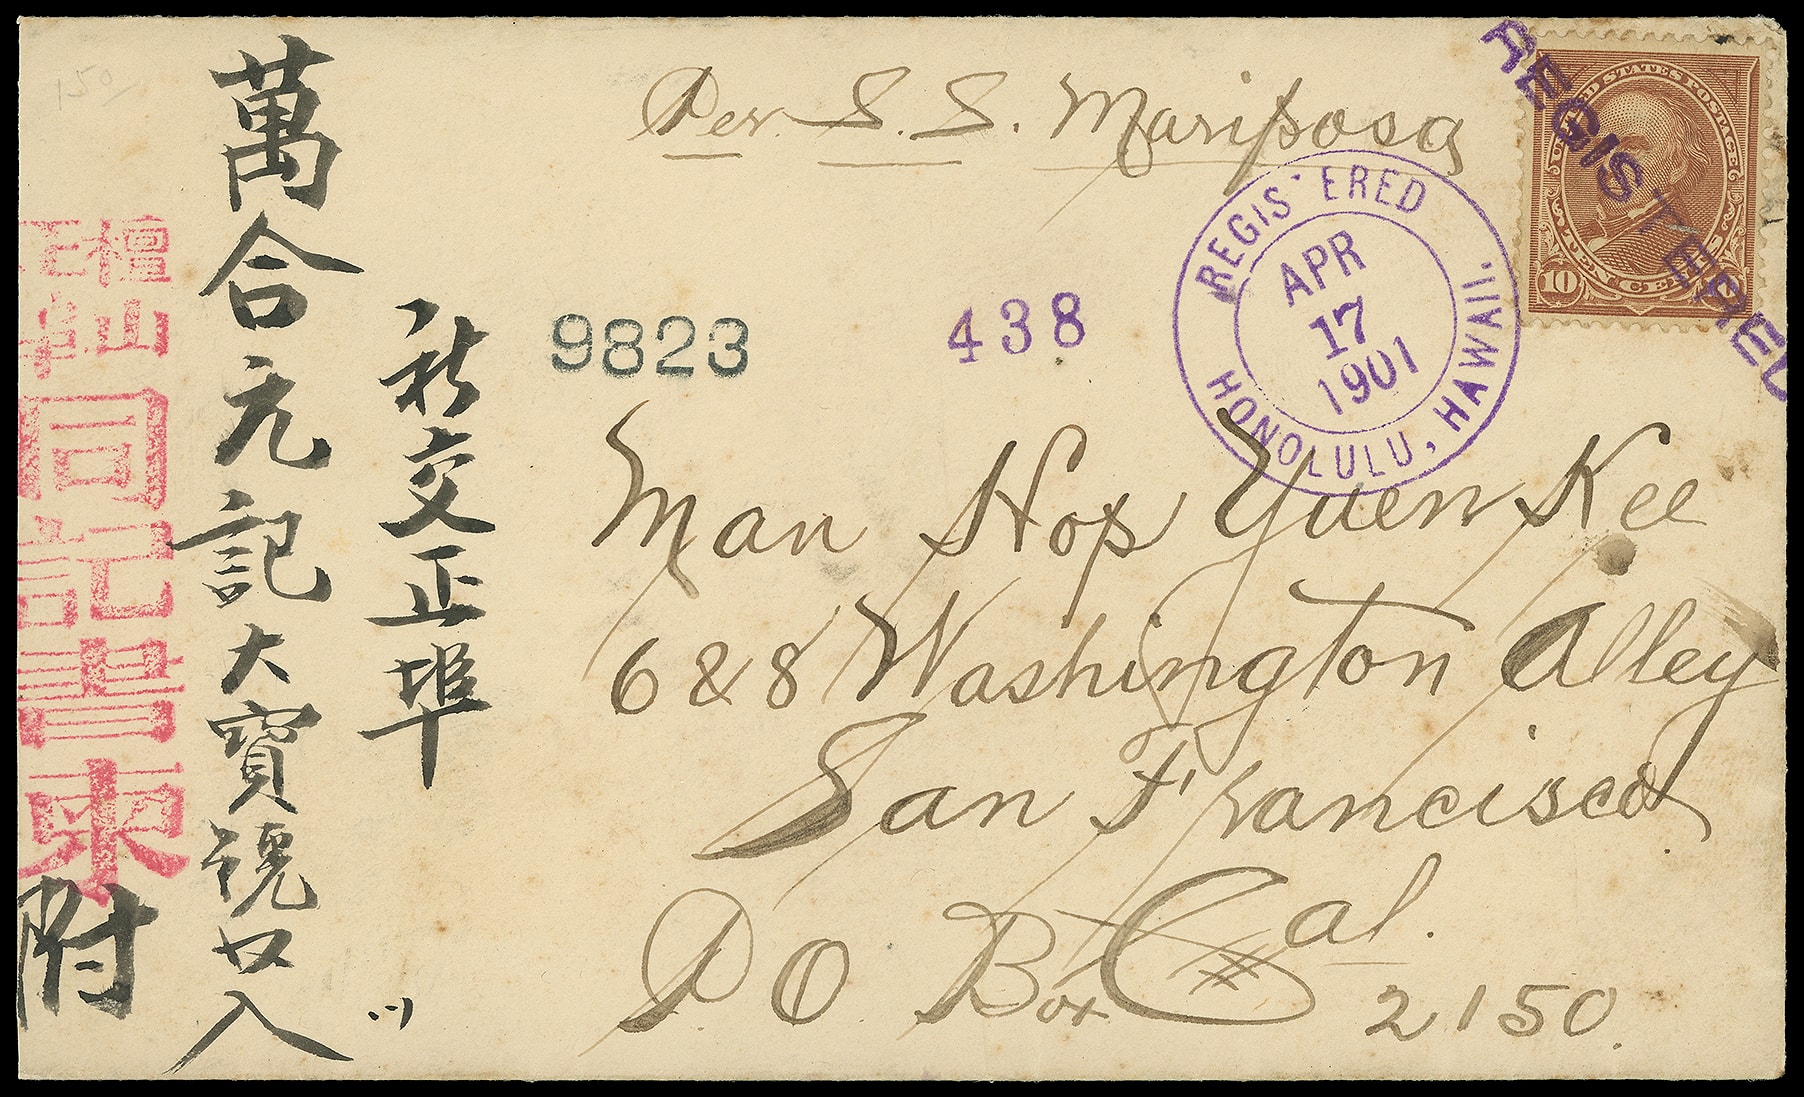 Per S. S. Mariposa
REGISTERED
UNITED STATES POSTAGE
10
TEN CENTS
REGISTERED
APR
17
1901
HONOLULU, HAWAII.
9823
438
Man Hop Yuen Kee
628 Washington Alley
San Francisco
Cal.
P. O. Box # 2150.
交正埠
萬合元記大寶號入
檀山
同記書柬
附
150